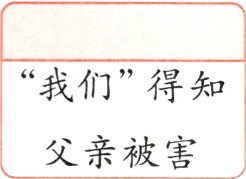 “我们”得知
父亲被害